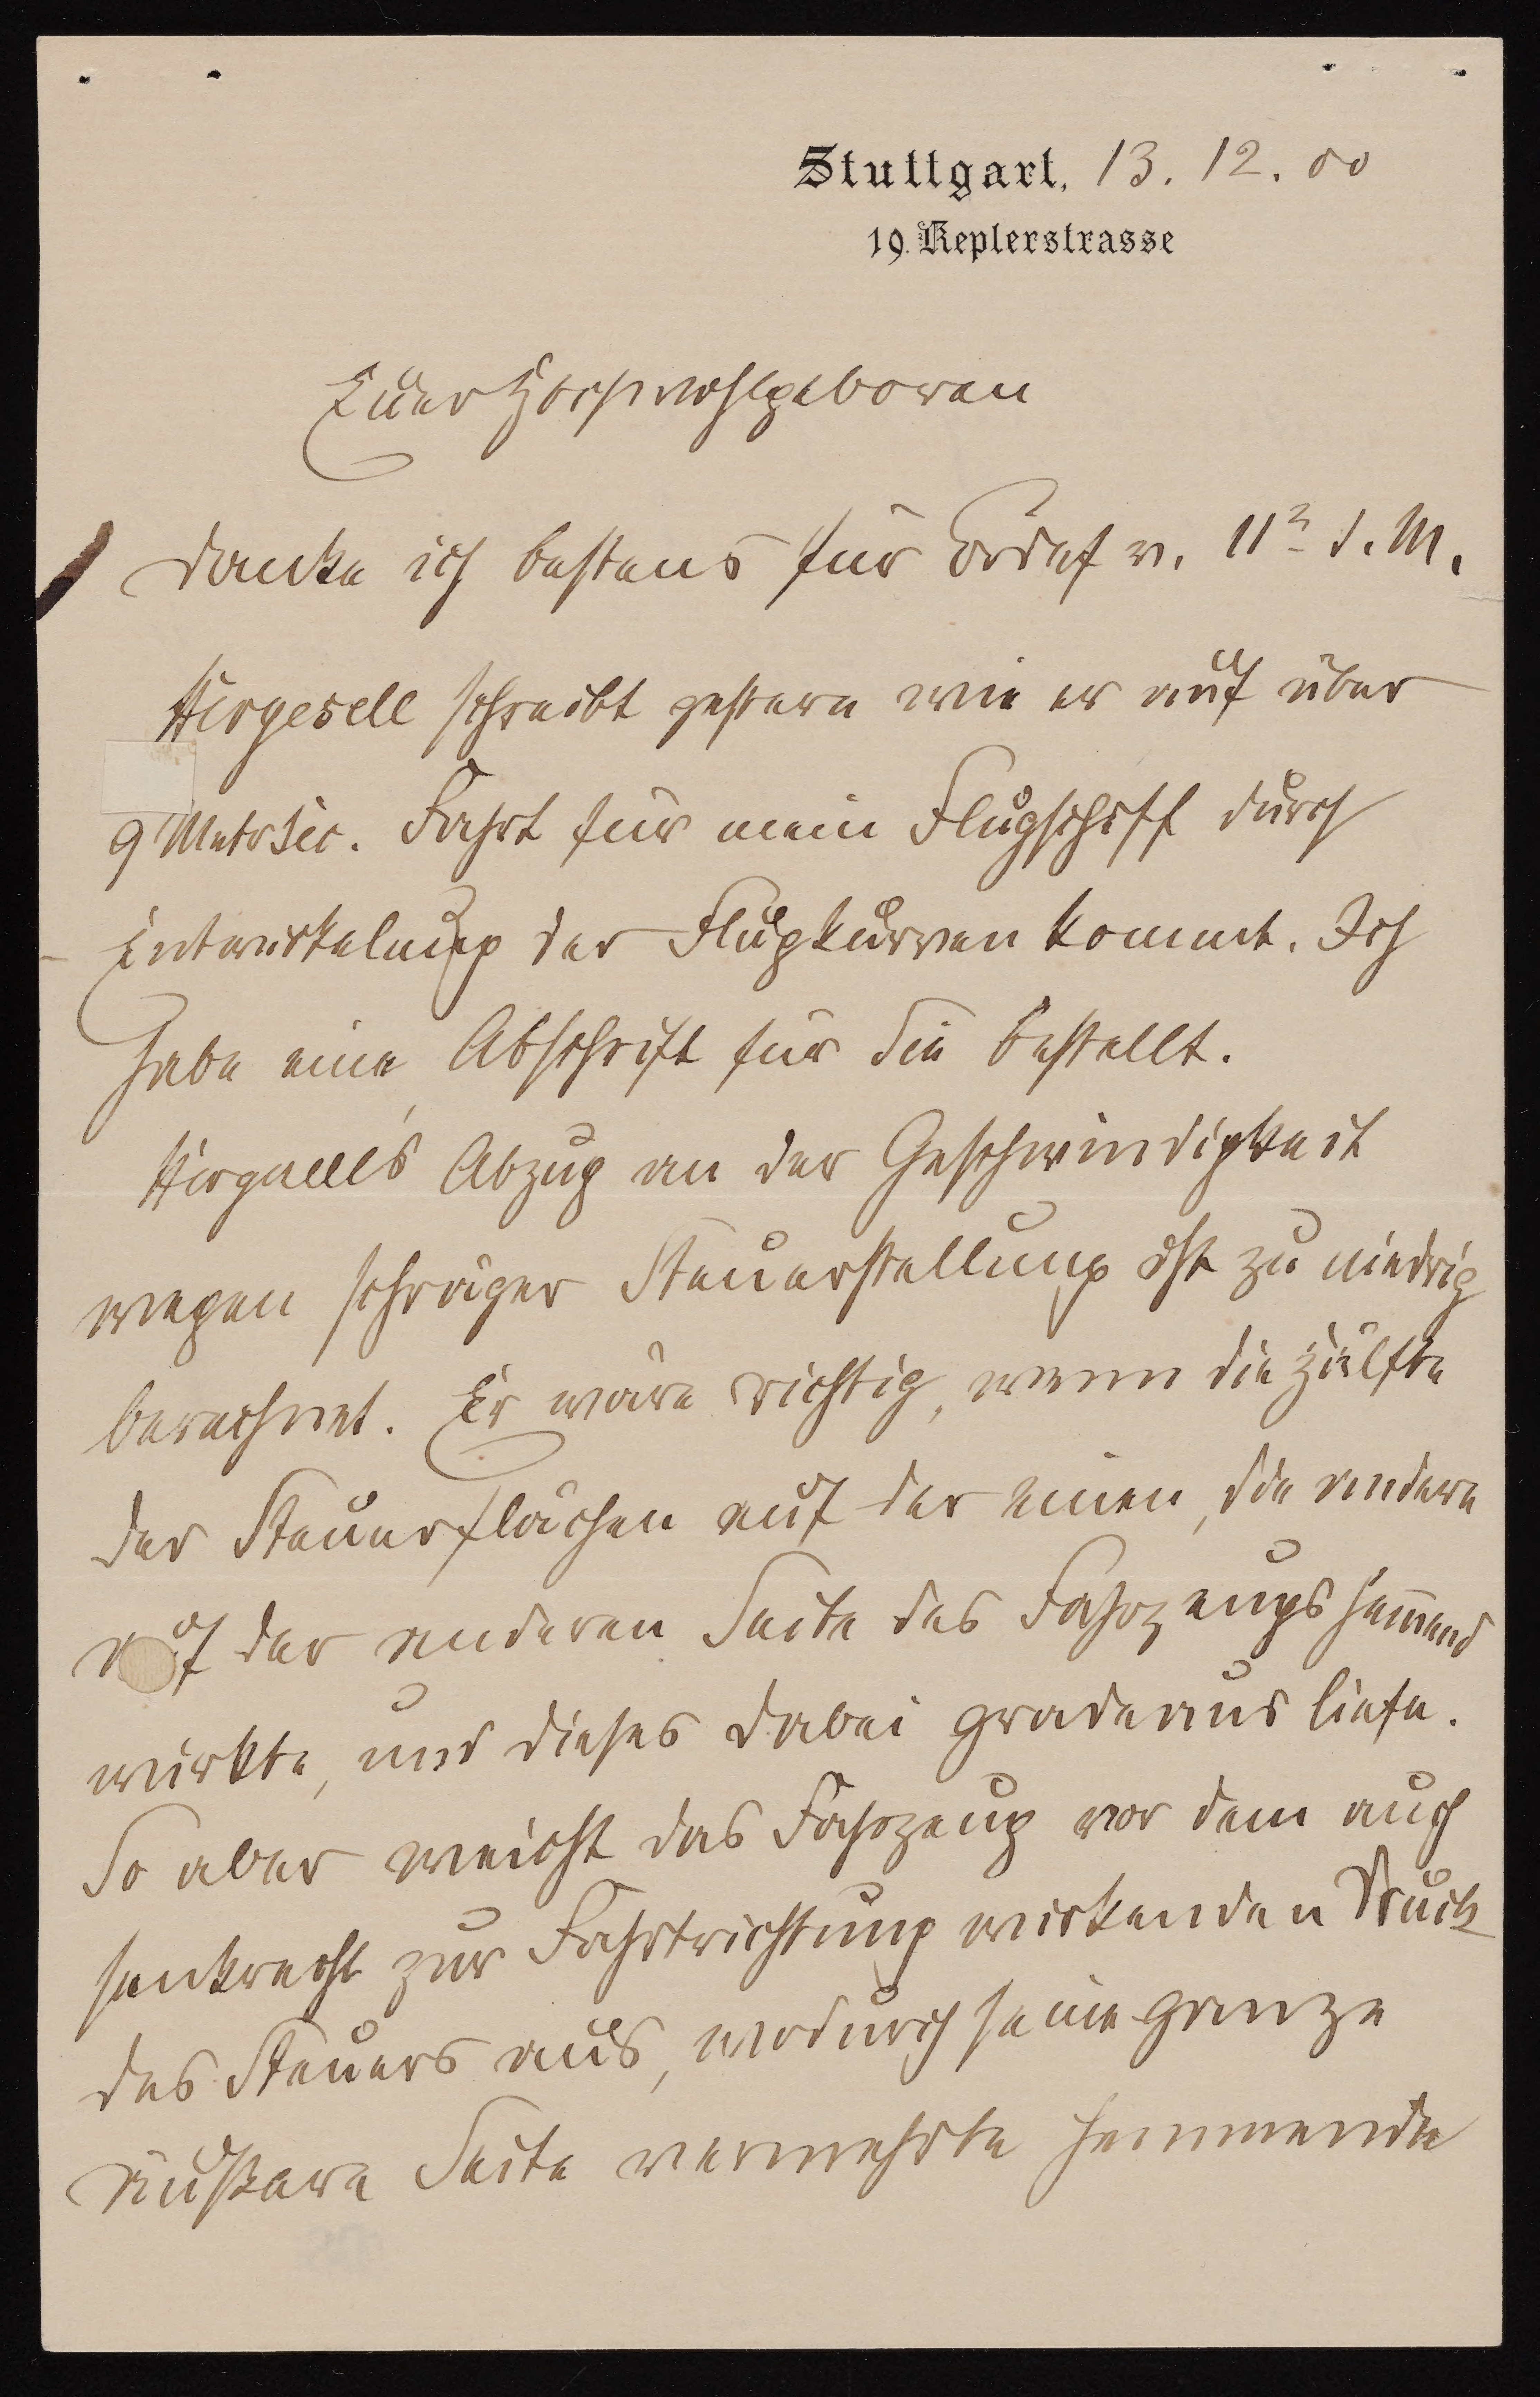 Stuttgart, 13. 12. 00
19. Keplerstrasse
Euer Hochwohlgeboren
danke ich bestens für Brief v. 11ⁿ d. M.
Hergesell schreibt gestern wie er auf über
9 Metrsec. Fahrt für mein Flugschiff durch
Entwickelung der Flugkurven kommt. Ich
habe eine Abschrift für Sie bestellt.
Abzug an der Geschwindigkeit
wegen schräger Steuerstellung ist zu niedrig
berechnet. Er wäre richtig, wenn die Hälfte
der Steuerflächen auf der einen, die andere
auf der anderen Seite des Fahrzeugs hem̄end
wirkte, und dieses dabei gradeaus liefe.
So aber weicht das Fahrzeug vor dem auch
senkrecht zur Fahrtrichtung wirkenden Druck
des Steuers aus, wodurch seine ganze
äußere Seite vermehrte hemmende